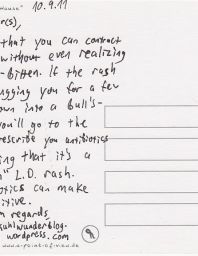 House" 10.9.11
r(s),
that you can contract
without even realizing
-bitten. If the rash
ugging you for a few
own into a bull's-
you'll go to the
escribe you antibiotics
ing that it's a
" L.D. rash.
otics can make
itive.
m regards
wunderblog.
wordpress.com
www.a-point-of-view.de